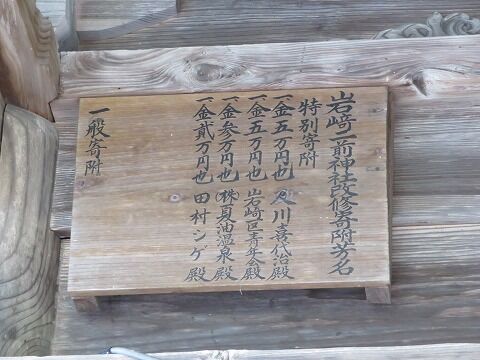 岩崎一前神社改修寄附芳名
特別寄附
一金五万円也 及川喜代治殿
一金五万円也 岩崎区青年会殿
一金参万円也 ㈱夏油温泉殿
一金貳万円也 田村シゲ殿
一般寄附